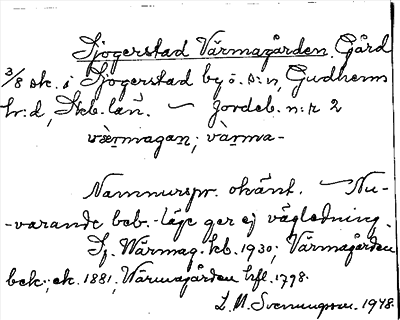 Sjögerstad Värmagården. Gård
3/8 sk. i Sjögerstad by o. s:n, Gudhems
hr:d, Skb. län. — Jordeb. n:r 2
værmagaṇ, vàrma-
Namnurspr. okänt. — Nu-
-varande beb.-läge ger ej vägledning.
Sj. Wärmag. kb. 1930; Värmagården
ek. 1881, Wärmagården hfl. 1798.
1948